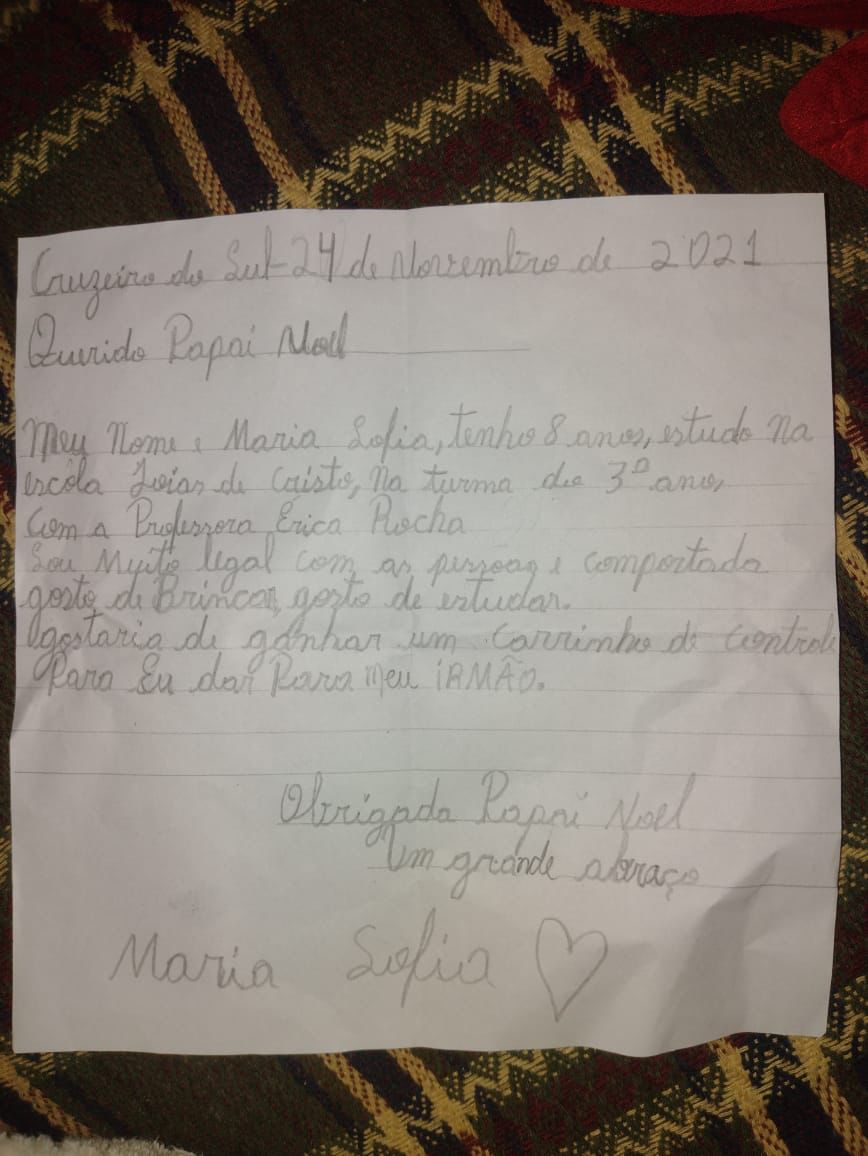 Cruzeiro do Sul-24 de Novembro de 2021
Querido Papai Noel
Meu Nome e Maria Sofia, tenho 8 anos, estudo na
escola Joias de Cristo, Na turma do 3º ano,
Com a Professora Érica Rocha
Sou Muito legal com as pessoas e comportada
gosto de Brincar, gosto de estudar.
gostaria de ganhar um carrinho de controle
Para Eu dar Para Meu iRMÃO.
Obrigada Papai Noel
Um grande abraço
Maria Sofia